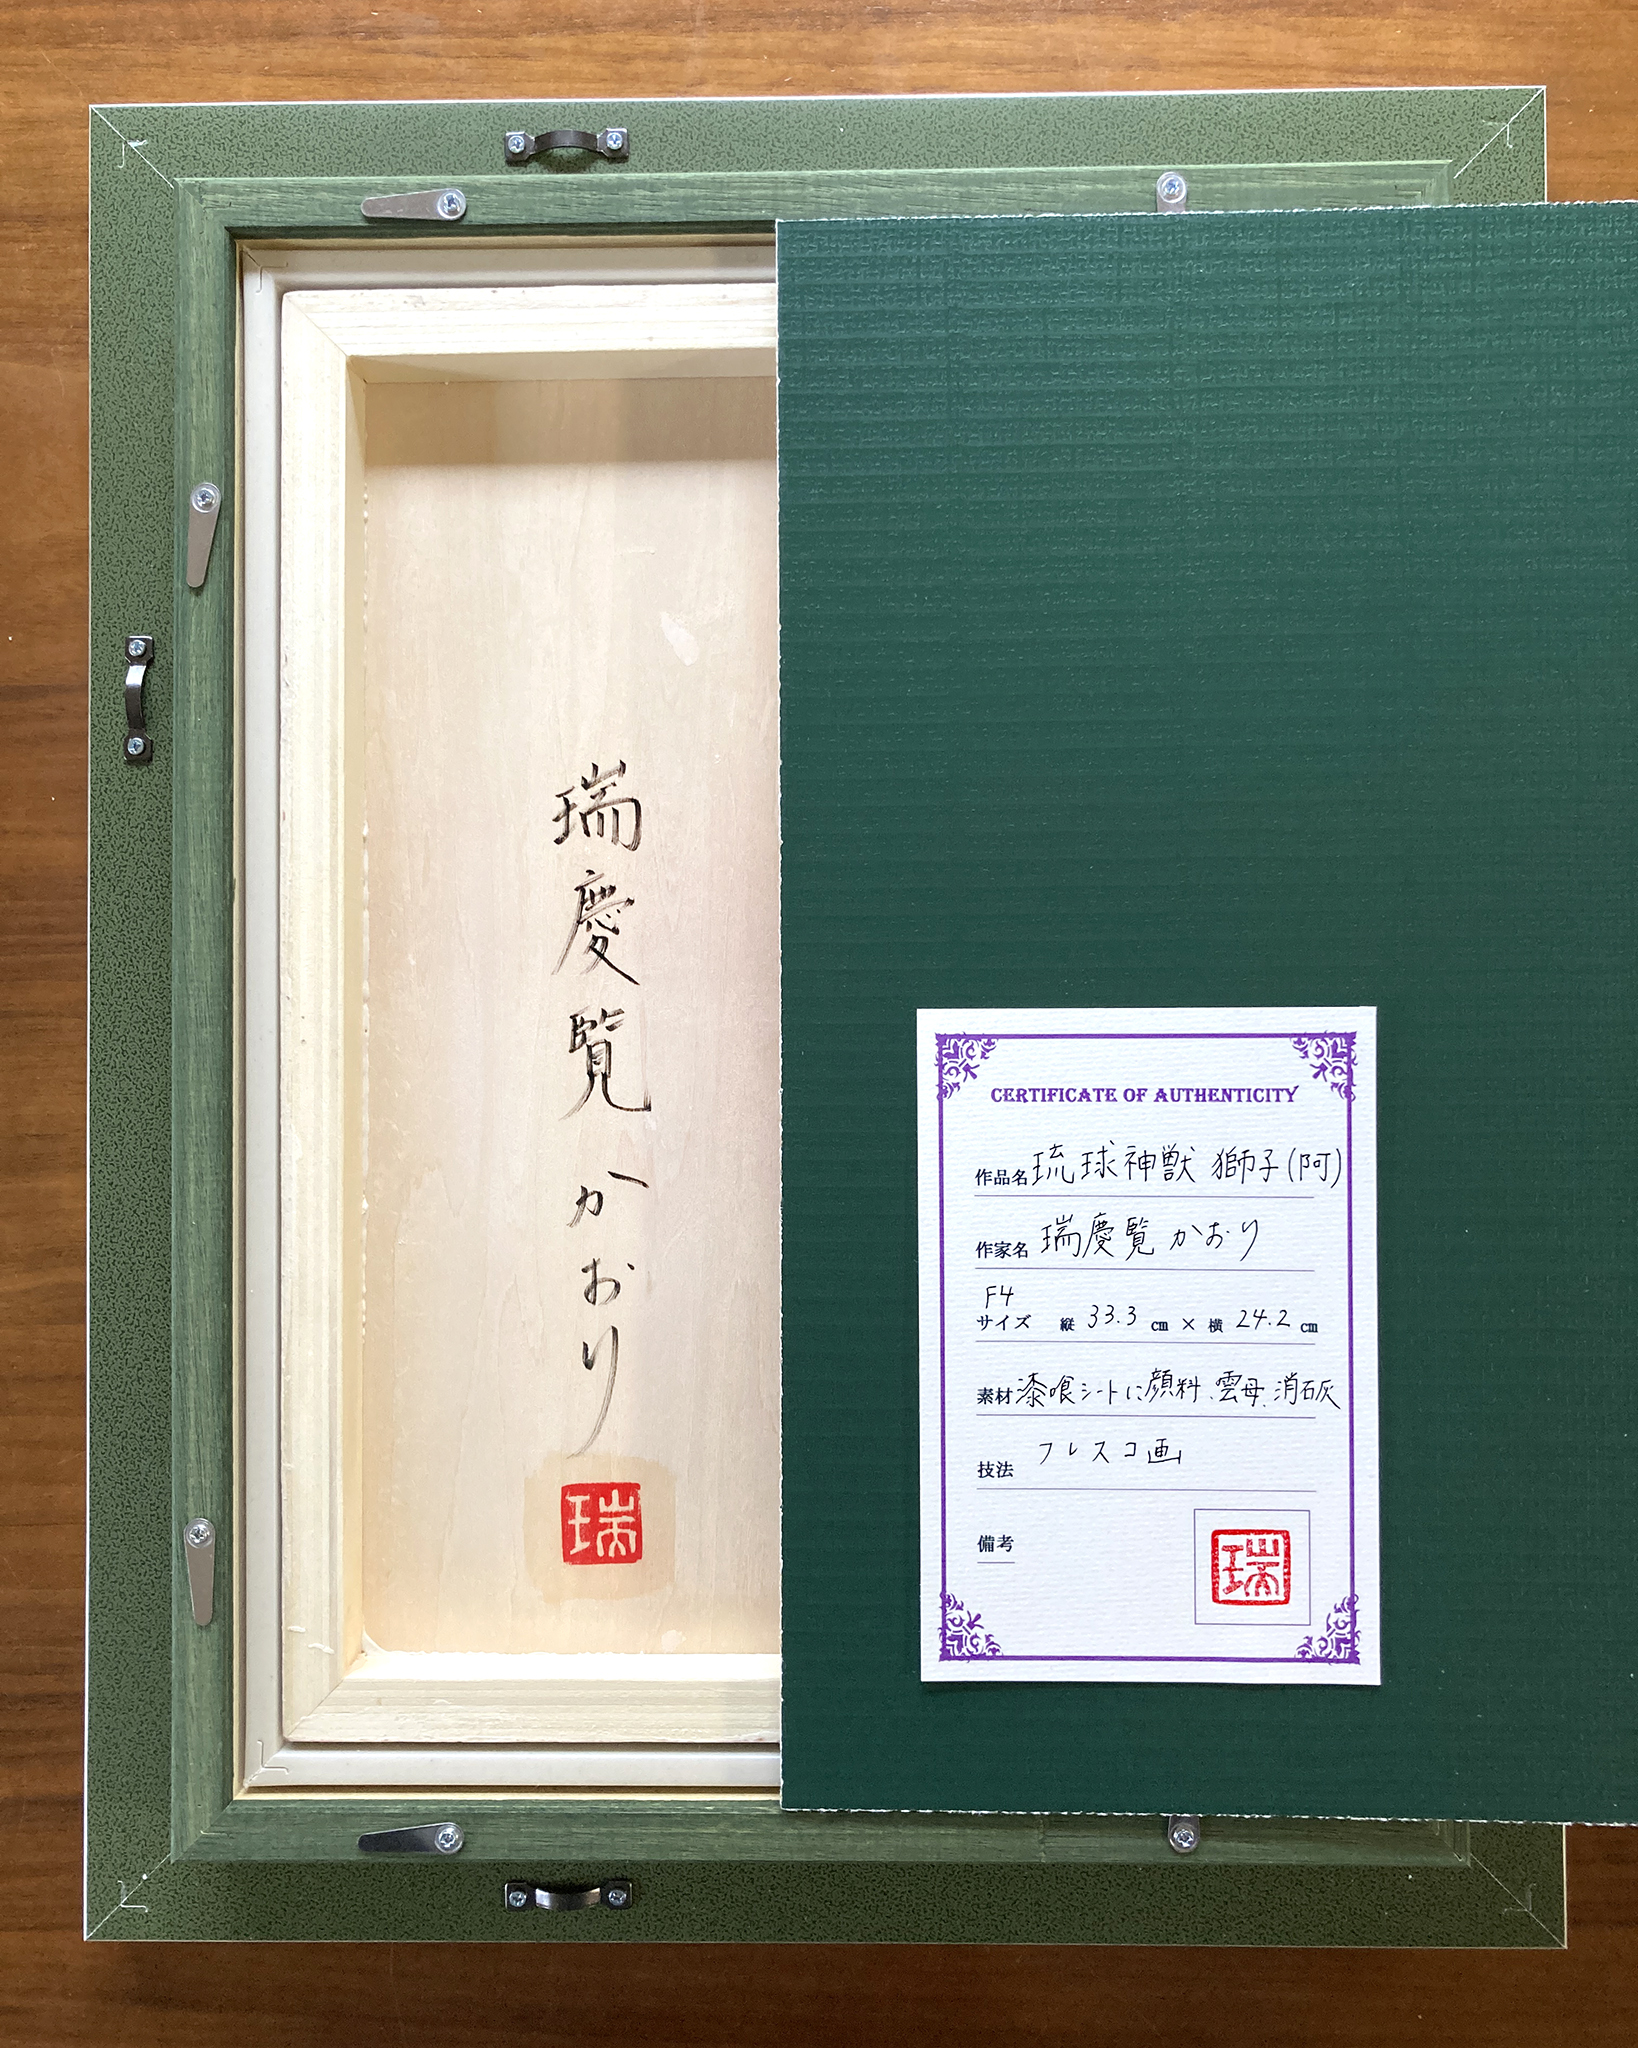 瑞慶覧かおり
瑞
CERTIFICATE OF AUTHENTICITY
作品名 琉球神獣 獅子(阿)
作家名 瑞慶覧 かおり
F4
サイズ 縦 33.3 cm × 横 24.2 cm
素材 漆喰シートに顔料、雲母、消石灰
技法 フレスコ画
備考
瑞